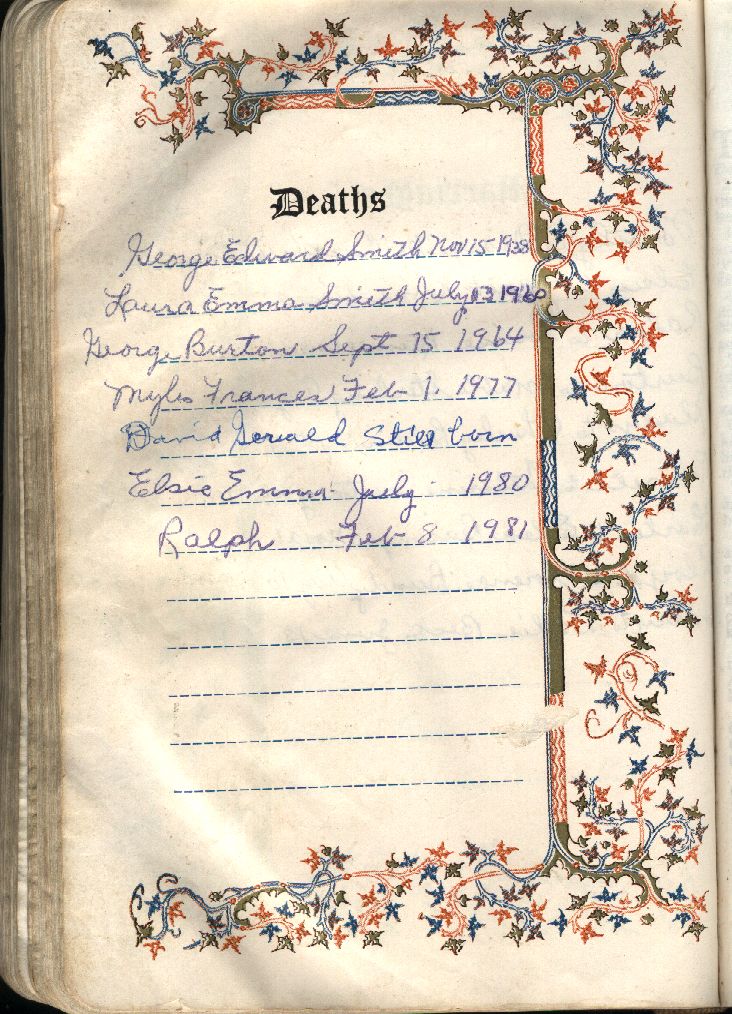 Deaths
George Edward Smith Nov 15 1938
Laura Emma Smith July 13 1960
George Burton Sept 15 1964
Myles Frances Feb 1. 1977
David Gerald Still born
Elsie Emma July 1980
Ralph Feb 8 1981